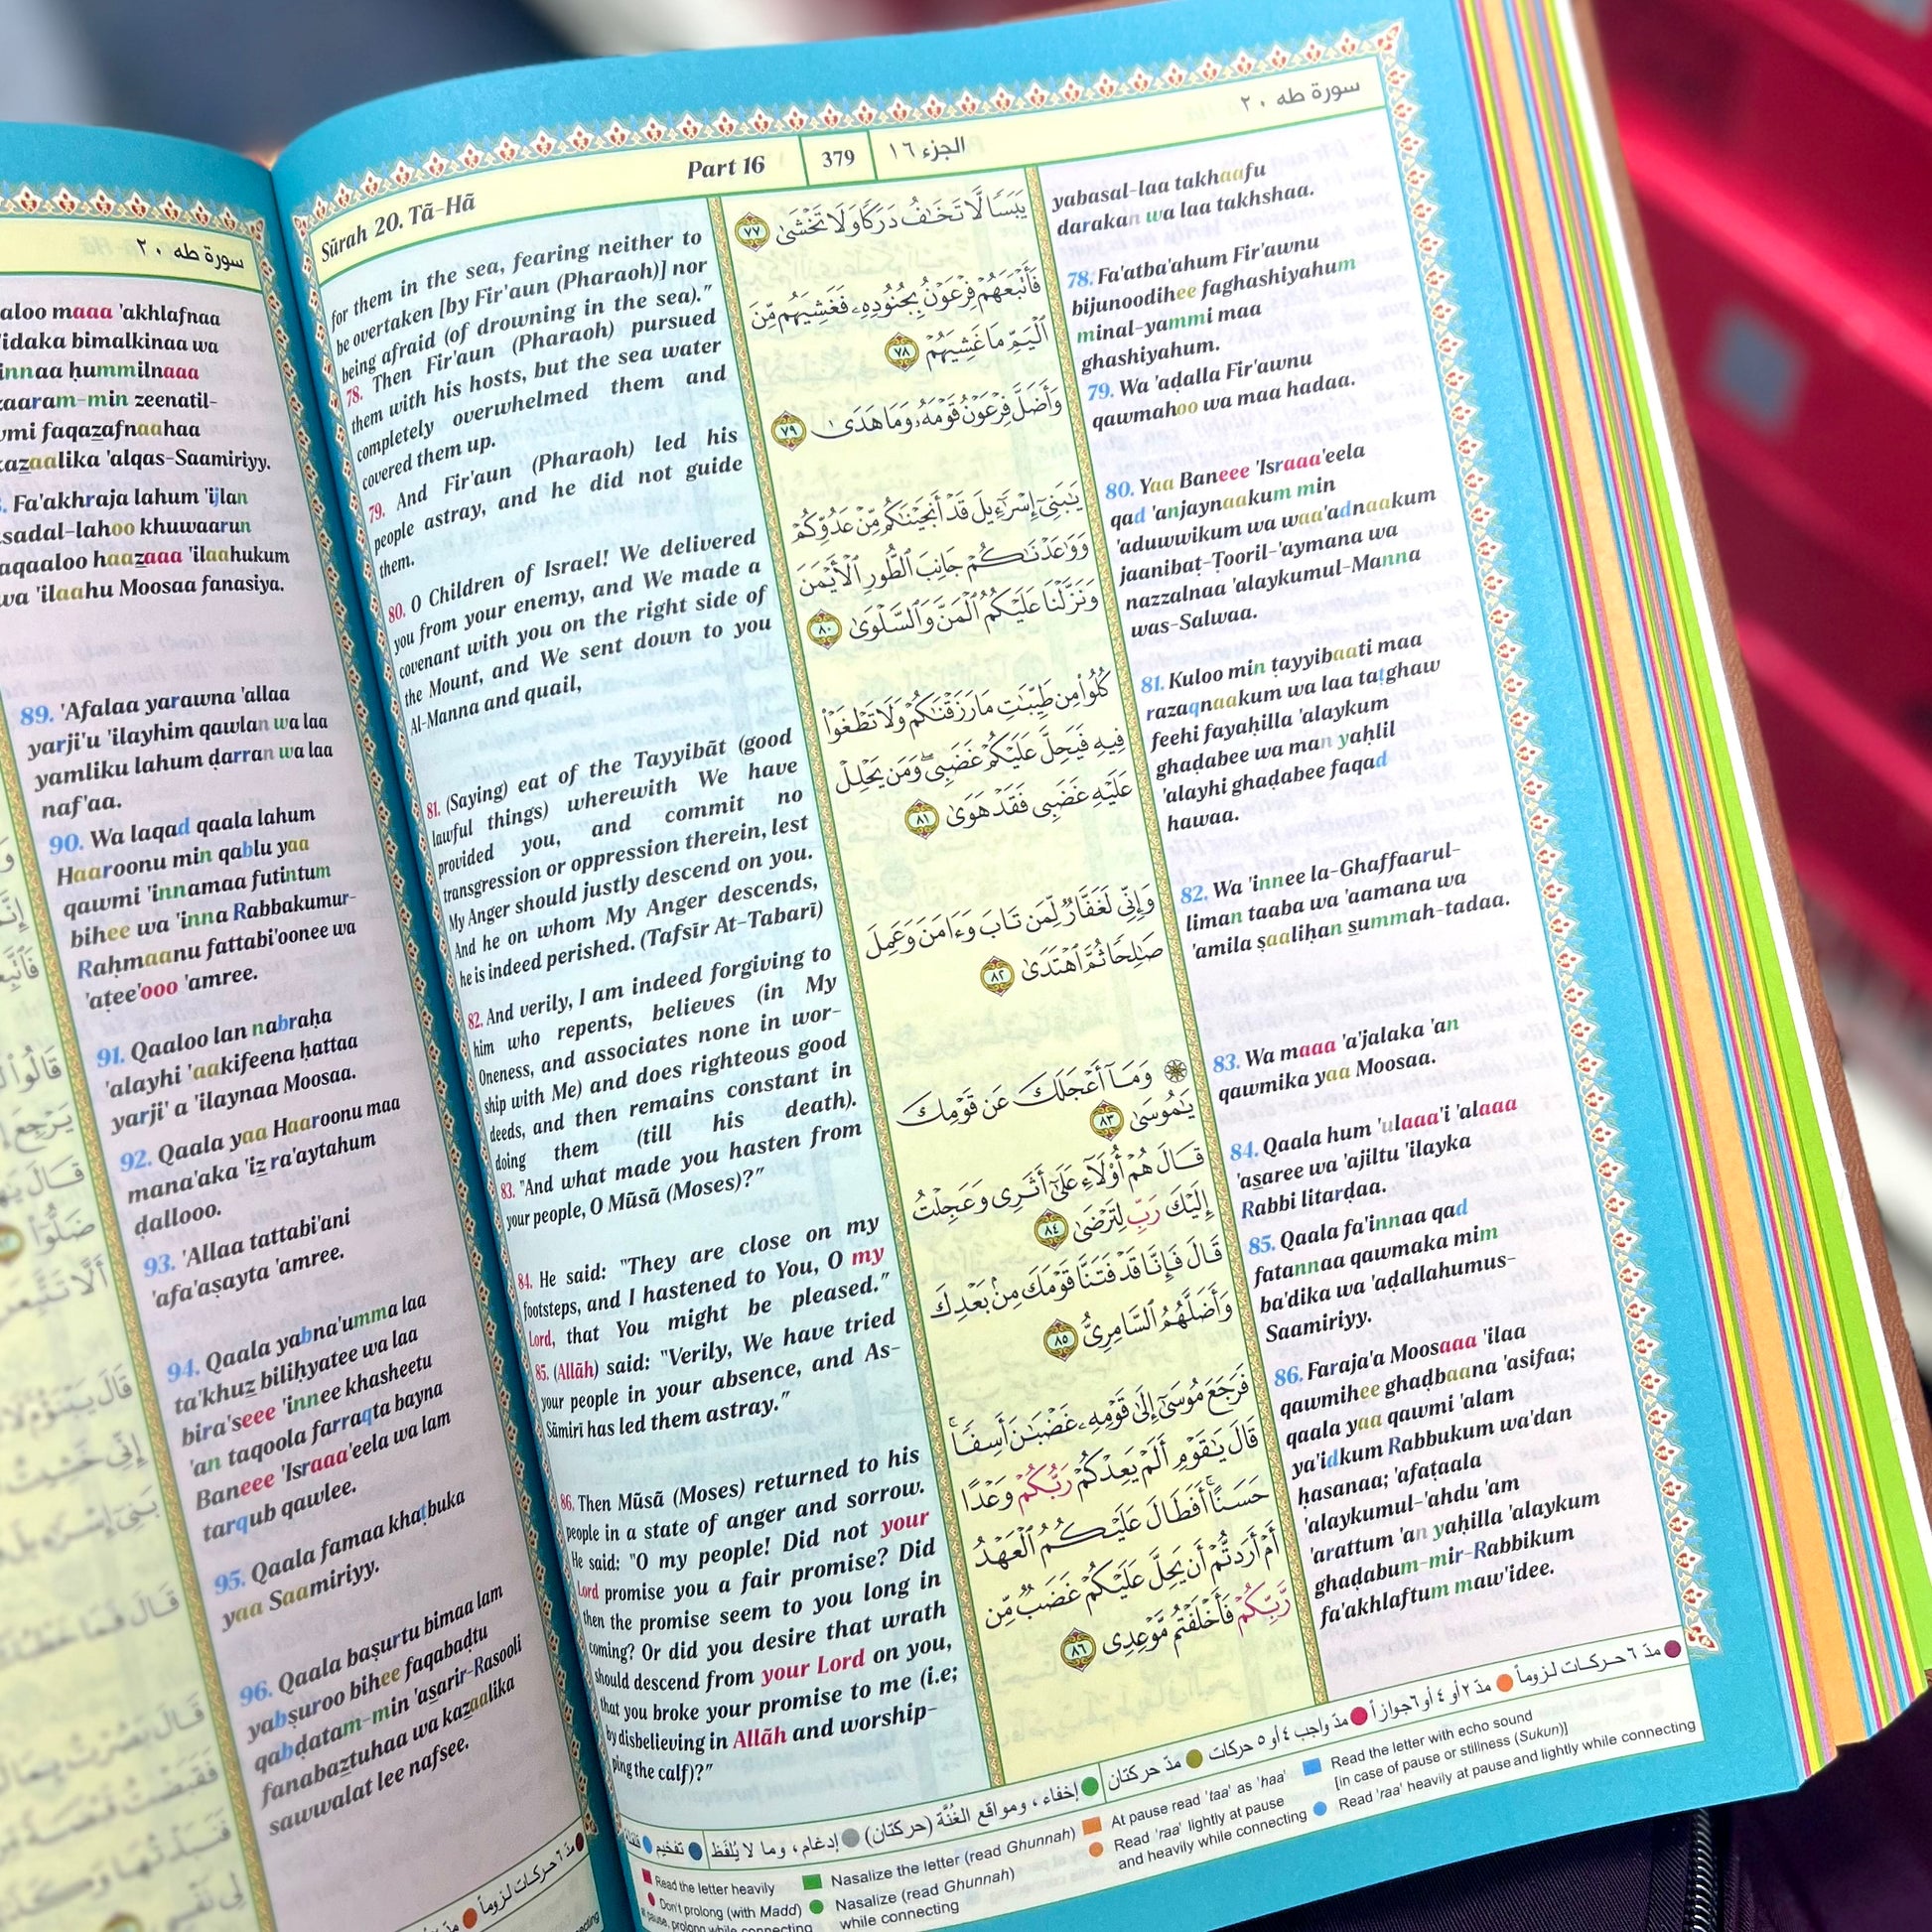 سورة طه ٢٠
aloo maaa 'akhlafnaa
'idaka bimalkinaa wa
innaa ḥummilnaaa
zaaram-min zeenatil-
wmi faqazafnaahaa
kazaalika 'alqas-Saamiriyy.
Fa'akhraja lahum 'ijlan
sadal-lahoo khuwaarun
aqaaloo haazaaa 'ilaahukum
wa 'ilaahu Moosaa fanasiya.
89. 'Afalaa yarawna 'allaa
yarji'u 'ilayhim qawlan wa laa
yamliku lahum ḍarran wa laa
naf'aa.
90. Wa laqad qaala lahum
Haaroonu min qablu yaa
qawmi 'innamaa futintum
bihee wa 'inna Rabbakumur-
Raḥmaanu fattabi'oonee wa
'aṭee'ooo 'amree.
91. Qaaloo lan nabraḥa
'alayhi 'aakifeena ḥattaa
yarji' a 'ilaynaa Moosaa.
92. Qaala yaa Haaroonu maa
mana'aka 'iz ra'aytahum
ḍallooo.
93. 'Allaa tattabi'ani
'afa'aṣayta 'amree.
94. Qaala yabna'umma laa
ta'khuz biliḥyatee wa laa
bira'seee 'innee khasheetu
'an taqoola farraqta bayna
Baneee 'Israaa'eela wa lam
tarqub qawlee.
95. Qaala famaa khaṭbuka
yaa Saamiriyy.
96. Qaala baṣurtu bimaa lam
yabṣuroo bihee faqabaḍtu
qabḍatam-min 'aṣarir-Rasooli
fanabaztuhaa wa kazaalika
sawwalat lee nafsee.
Sūrah 20. Tā-Hā
Part 16
379
الجزء ١٦
سورة طه ٢٠
for them in the sea, fearing neither to
be overtaken [by Fir'aun (Pharaoh)] nor
being afraid (of drowning in the sea)."
78. Then Fir'aun (Pharaoh) pursued
them with his hosts, but the sea water
completely overwhelmed them and
covered them up.
79. And Fir'aun (Pharaoh) led his
people astray, and he did not guide
them.
80. O Children of Israel! We delivered
you from your enemy, and We made a
covenant with you on the right side of
the Mount, and We sent down to you
Al-Manna and quail,
81. (Saying) eat of the Tayyibāt (good
lawful things) wherewith We have
provided you, and commit no
transgression or oppression therein, lest
My Anger should justly descend on you.
And he on whom My Anger descends,
he is indeed perished. (Tafsīr At-Tabarī)
82. And verily, I am indeed forgiving to
him who repents, believes (in My
Oneness, and associates none in wor-
ship with Me) and does righteous good
deeds, and then remains constant in
doing them (till his death).
83. "And what made you hasten from
your people, O Mūsā (Moses)?"
84. He said: "They are close on my
footsteps, and I hastened to You, O my
Lord, that You might be pleased."
85. (Allāh) said: "Verily, We have tried
your people in your absence, and As-
Sāmirī has led them astray."
86. Then Mūsā (Moses) returned to his
people in a state of anger and sorrow.
He said: "O my people! Did not your
Lord promise you a fair promise? Did
then the promise seem to you long in
coming? Or did you desire that wrath
should descend from your Lord on you,
that you broke your promise to me (i.e;
by disbelieving in Allāh and worship-
ping the calf)?"
يَبَسًا لَّا تَخَـٰفُ دَرَكًا وَلَا تَخْشَىٰ ٧٧
فَأَتْبَعَهُمْ فِرْعَوْنُ بِجُنُودِهِۦ فَغَشِيَهُم مِّنَ
ٱلْيَمِّ مَا غَشِيَهُمْ ٧٨
وَأَضَلَّ فِرْعَوْنُ قَوْمَهُۥ وَمَا هَدَىٰ ٧٩
يَـٰبَنِىٓ إِسْرَٰٓءِيلَ قَدْ أَنجَيْنَـٰكُم مِّنْ عَدُوِّكُمْ
وَوَٰعَدْنَـٰكُمْ جَانِبَ ٱلطُّورِ ٱلْأَيْمَنَ
وَنَزَّلْنَا عَلَيْكُمُ ٱلْمَنَّ وَٱلسَّلْوَىٰ ٨٠
كُلُوا۟ مِن طَيِّبَـٰتِ مَا رَزَقْنَـٰكُمْ وَلَا تَطْغَوْا۟
فِيهِ فَيَحِلَّ عَلَيْكُمْ غَضَبِى ۖ وَمَن يَحْلِلْ
عَلَيْهِ غَضَبِى فَقَدْ هَوَىٰ ٨١
وَإِنِّى لَغَفَّارٌ لِّمَن تَابَ وَءَامَنَ وَعَمِلَ
صَـٰلِحًا ثُمَّ ٱهْتَدَىٰ ٨٢
۞ وَمَآ أَعْجَلَكَ عَن قَوْمِكَ
يَـٰمُوسَىٰ ٨٣
قَالَ هُمْ أُو۟لَآءِ عَلَىٰٓ أَثَرِى وَعَجِلْتُ
إِلَيْكَ رَبِّ لِتَرْضَىٰ ٨٤
قَالَ فَإِنَّا قَدْ فَتَنَّا قَوْمَكَ مِنۢ بَعْدِكَ
وَأَضَلَّهُمُ ٱلسَّامِرِىُّ ٨٥
فَرَجَعَ مُوسَىٰٓ إِلَىٰ قَوْمِهِۦ غَضْبَـٰنَ أَسِفًا ۚ
قَالَ يَـٰقَوْمِ أَلَمْ يَعِدْكُمْ رَبُّكُمْ وَعْدًا
حَسَنًا ۚ أَفَطَالَ عَلَيْكُمُ ٱلْعَهْدُ
أَمْ أَرَدتُّمْ أَن يَحِلَّ عَلَيْكُمْ غَضَبٌ مِّن
رَّبِّكُمْ فَأَخْلَفْتُم مَّوْعِدِى ٨٦
yabasal-laa takhaafu
darakan wa laa takhshaa.
78. Fa'atba'ahum Fir'awnu
bijunoodihee faghashiyahum
minal-yammi maa
ghashiyahum.
79. Wa 'aḍalla Fir'awnu
qawmahoo wa maa hadaa.
80. Yaa Baneee 'Israaa'eela
qad 'anjaynaakum min
'aduwwikum wa waa'adnaakum
jaanibaṭ-Ṭooril-'aymana wa
nazzalnaa 'alaykumul-Manna
was-Salwaa.
81. Kuloo min ṭayyibaati maa
razaqnaakum wa laa taṭghaw
feehi fayaḥilla 'alaykum
ghaḍabee wa man yaḥlil
'alayhi ghaḍabee faqad
hawaa.
82. Wa 'innee la-Ghaffaarul-
liman taaba wa 'aamana wa
'amila ṣaaliḥan summah-tadaa.
83. Wa maaa 'a'jalaka 'an
qawmika yaa Moosaa.
84. Qaala hum 'ulaaa'i 'alaaa
'aṣaree wa 'ajiltu 'ilayka
Rabbi litarḍaa.
85. Qaala fa'innaa qad
fatannaa qawmaka mim
ba'dika wa 'aḍallahumus-
Saamiriyy.
86. Faraja'a Moosaaa 'ilaa
qawmihee ghaḍbaana 'asifaa;
qaala yaa qawmi 'alam
ya'idkum Rabbukum wa'dan
ḥasanaa; 'afaṭaala
'alaykumul-'ahdu 'am
'arattum 'an yaḥilla 'alaykum
ghaḍabum-mir-Rabbikum
fa'akhlaftum maw'idee.
مدّ ٦ حركات لزوماً
مدّ ٢ أو ٤ أو ٦ جوازاً
مدّ واجب ٤ أو ٥ حركات
مدّ حركتان
إخفاء، ومواقع الغُنَّة (حركتان)
إدغام، وما لا يُلفَظ
تفخيم
Read the letter heavily
Don't prolong (with Madd)
pause, prolong while connecting
Nasalize the letter (read Ghunnah)
Nasalize (read Ghunnah)
while connecting
At pause read 'taa' as 'haa'
Read 'raa' lightly at pause
and heavily while connecting
Read the letter with echo sound
[in case of pause or stillness (Sukun)]
Read 'raa' heavily at pause and lightly while connecting
مدّ ٦ حركات لزوماً